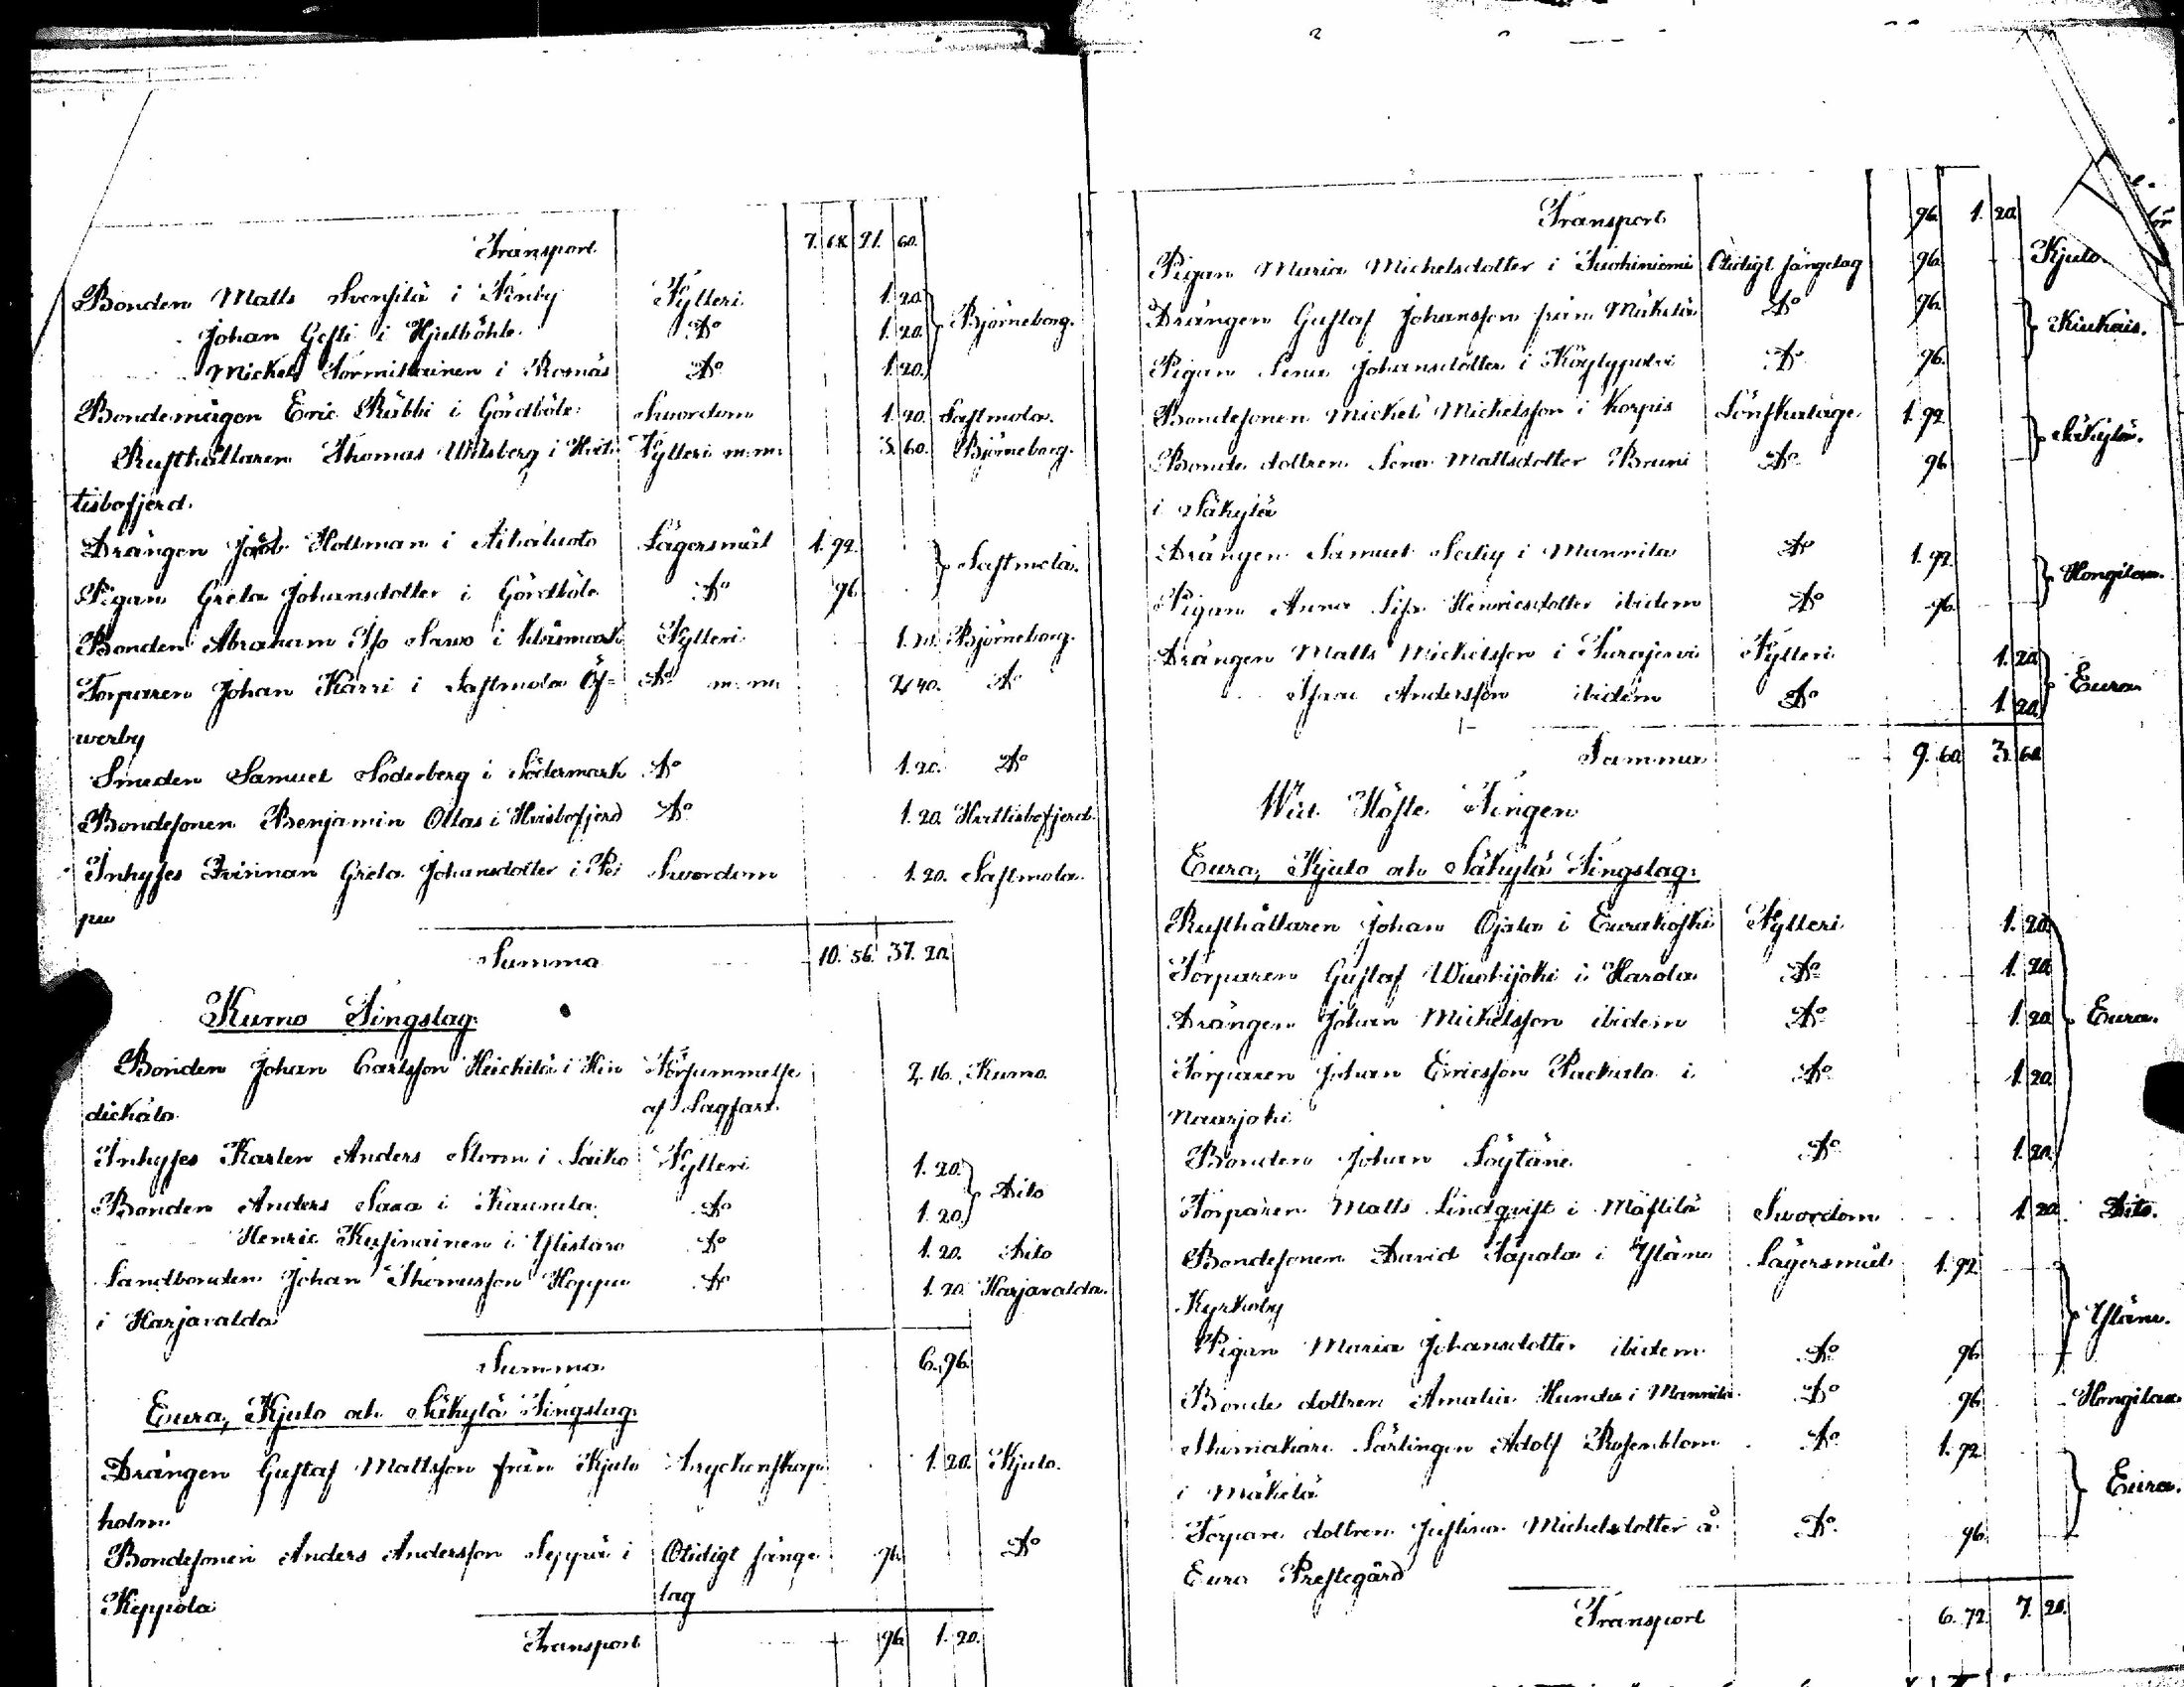 Transport 7. 68. 21. 60.
Bonden Matts Svensilä i Inby Fylleri 1. 20.
Johan Gesti i Hjulböhle D:o 1. 20. Björneborg.
Mickel Tormikainen i Rosnäs D:o 1. 20.
Bondemågen Eric Räbbi i Gördböle Swordom 1. 20. Sastmola.
Rusthållaren Thomas Uhlsberg i Hvit= Fylleri m: m: 3. 60. Björneborg.
tisbofjerd.
Drängen Jacob Holtman i Ahåluoto Lägersmål 1. 92.
Sastmola.
Pigan Greta Johansdotter i Gördböle D:o 96
Bonden Abraham Is: Saxo i Klåsmark Fylleri 1. 20. Björneborg.
Torparen Johan Karri i Sastmola Öf= D:o m: m: 2. 40. D:o
werby
Smeden Samuel Söderberg i Södermark D:o 1. 20. D:o
Bondesonen Benjamin Ollas i Hvisbofjerd D:o 1. 20. Hvittisbofjerd.
Inhyses Qvinnan Greta Johansdotter i Po: Swordom 1. 20. Sastmola.
pu
Summa 10. 56. 37. 20.
Kumo Tingslag:
Bonden Johan Carlsson Heickilä i Hin Försummelse 2. 16. Kumo.
dickala af Lagfart.
Inhyses Karlen Anders Storm i Laiko Fylleri 1. 20.
Dito
Bonden Anders Saxa i Kaunila D:o 1. 20.
Henric Kusinainen i Ylistaro D:o 1. 20. Dito
Landbonden Johan Thomasson Hoppu D:o 1. 20. Harjavalda.
i Harjavalda
Summa 6. 96.
Eura, Kjulo och Säkylä Tingslag.
Drängen Gustaf Mattsson från Kjulo Dryckenskap 1. 20. Kjulo.
holm.
Bondesonen Anders Andersson Seppä i Otidigt sänge 96. D:o
Keppola lag
Transport 96. 1. 20.
Transport 96. 1. 20.
Pigan Maria Michelsdotter i Tuohiniemi Otidigt sängelag 96. Kjulo.
Drängen Gustaf Johansson från Mäkelä D:o 96.
Kiukais.
Pigan Lena Johansdotter i Köylypolvi D:o 96.
Bondesonen Mickel Mickelsson i Korpis Lönskaläge 1. 92
Säkylä.
Bonde dottren Lena Mattsdotter Bruni D:o 96
i Säkylä
Drängen Samuel Sedig i Mannila D:o 1. 92.
Hongilax.
Pigan Anna Lisa Henricsdotter ibidem D:o 96.
Drängen Matts Mickelsson i Turajervi Fylleri 1. 20
Eura
Isaac Andersson ibidem D:o 1. 20.
Summa 9. 60 3. 60
Wid Höste Tingen
Eura, Kjulo och Säkylä Tingslag:
Rusthållaren Johan Ojala i Eurakoski Fylleri 1. 20.
Torparen Gustaf Wuohijoki i Harola D:o 1. 20
Drängen Johan Mickelsson ibidem D:o 1. 20 Eura.
Torparen Johan Ericsson Packala i D:o 1. 20
Naarjoki
Bonden Johan Löytäne D:o 1. 20.
Torparen Matts Lindqvist i Mästilä Swordom 1. 20. Dito.
Bondesonen David Tapala i Yläne Lägersmål 1. 92
Kyrkoby
Yläne.
Pigan Maria Johansdotter ibidem D:o 96.
Bonde dottren Amalia Hunda i Mannila D:o 96 Hongilax
Skomakare Lärlingen Adolf Rosenblom D:o 1. 92
i Mäkelä
Eura.
Torpare dottren Justina Michelsdotter å D:o 96.
Eura Prestegård
Transport 6. 72. 7. 20.